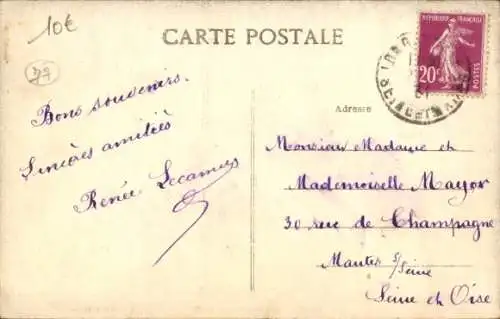 10€
CARTE POSTALE
77
RÉPUBLIQUE FRANÇAISE
20c
POSTES
Adresse
Bons souvenirs.
Sincères amitiés
Renée Lecamus
Monsieur Madame et
Mademoiselle Mayor
30 rue de Champagne
Mantes s/Seine
Seine et Oise